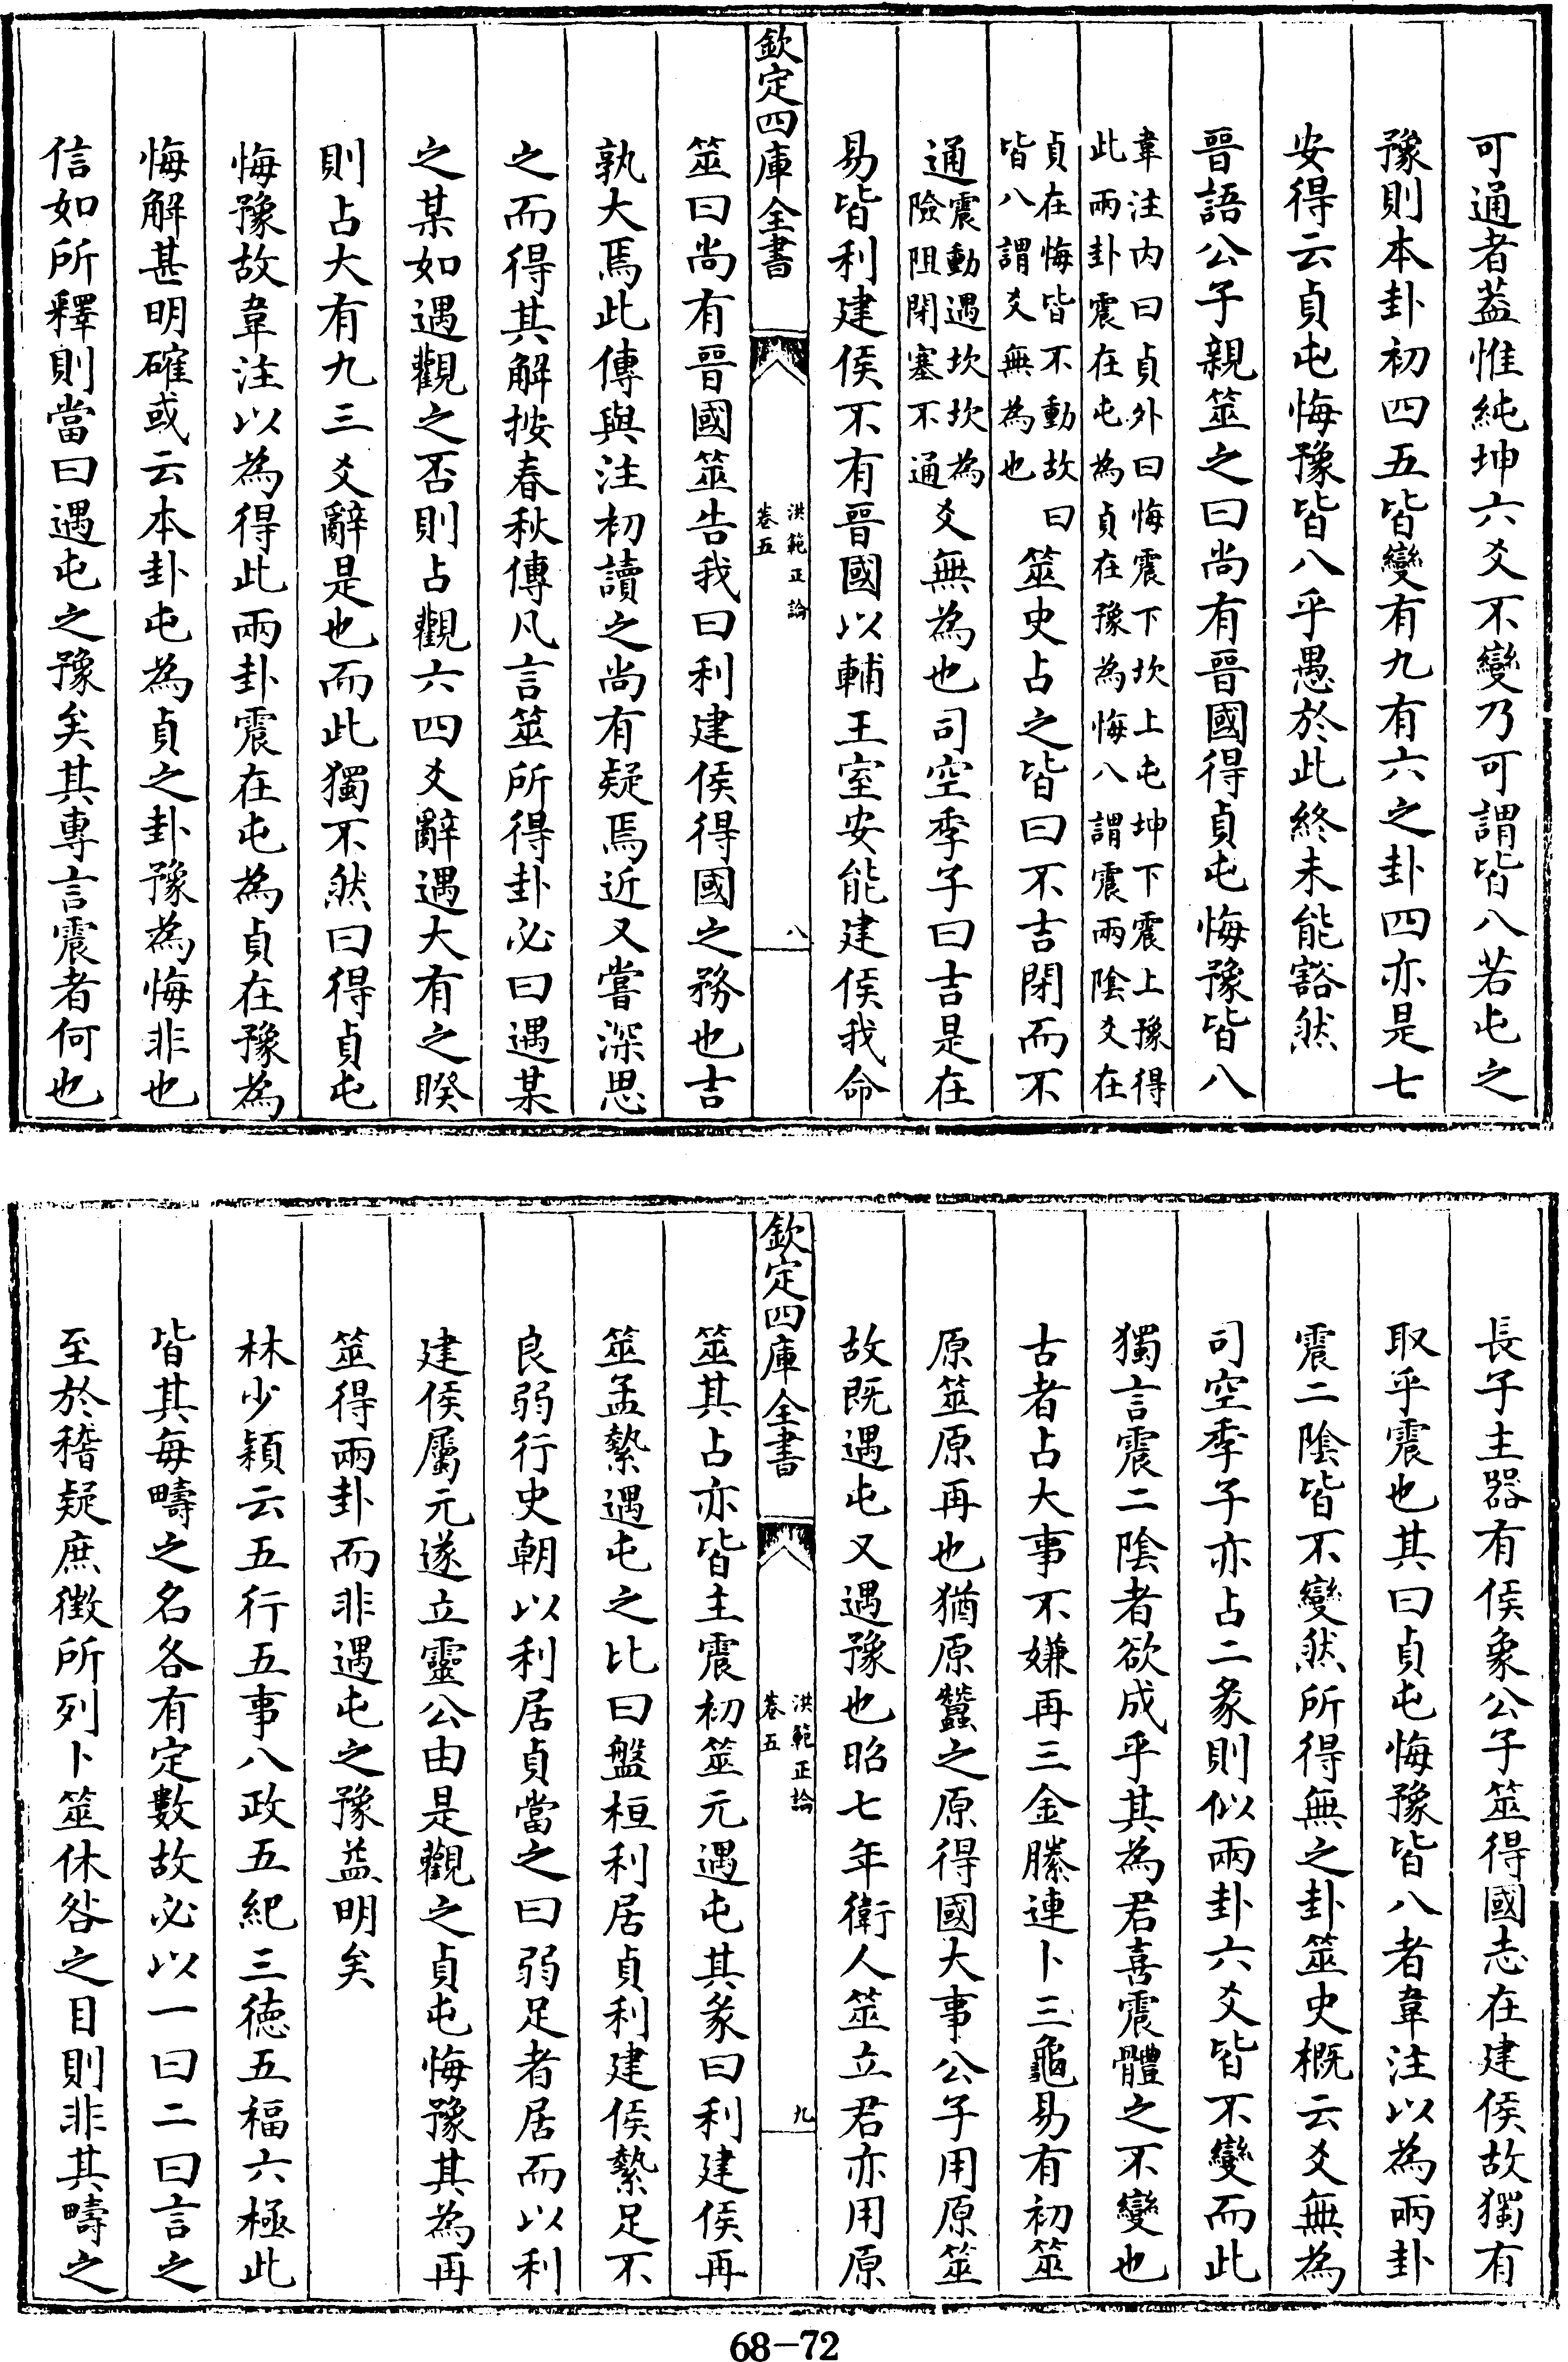 可通者葢惟純坤六爻不變乃可謂皆八若屯之
豫則本卦初四五皆變有九有六之卦四亦是七
安得云貞屯悔豫皆八乎愚於此終未能豁然
晉語公子親筮之曰尚有晉國得貞屯悔豫皆八
韋注内曰貞外曰悔震下坎上屯坤下震上豫得
此兩卦震在屯為貞在豫為悔八謂震兩陰爻在
貞在悔皆不動故曰
皆八謂爻無為也
筮史占之皆曰不吉閉而不
通
震動遇坎坎為
險阻閉塞不通
爻無為也司空季子曰吉是在
易皆利建侯不有晉國以輔王室安能建侯我命
欽定四庫全書
洪範正論
卷五
八
筮曰尚有晉國筮告我曰利建侯得國之務也吉
孰大焉此傳與注初讀之尚有疑焉近又嘗深思
之而得其解按春秋傳凡言筮所得卦必曰遇某
之某如遇觀之否則占觀六四爻辭遇大有之睽
則占大有九三爻辭是也而此獨不然曰得貞屯
悔豫故韋注以為得此兩卦震在屯為貞在豫為
悔解甚明確或云本卦屯為貞之卦豫為悔非也
信如所釋則當曰遇屯之豫矣其專言震者何也
長子主器有侯象公子筮得國志在建侯故獨有
取乎震也其曰貞屯悔豫皆八者韋注以為兩卦
震二陰皆不變然所得無之卦筮史概云爻無為
司空季子亦占二彖則似兩卦六爻皆不變而此
獨言震二陰者欲成乎其為君喜震體之不變也
古者占大事不嫌再三金縢連卜三龜易有初筮
原筮原再也猶原蠶之原得國大事公子用原筮
故既遇屯又遇豫也昭七年衛人筮立君亦用原
欽定四庫全書
洪範正論
卷五
九
筮其占亦皆主震初筮元遇屯其彖曰利建侯再
筮孟縶遇屯之比曰盤桓利居貞利建侯縶足不
良弱行史朝以利居貞當之曰弱足者居而以利
建侯屬元遂立靈公由是觀之貞屯悔豫其為再
筮得兩卦而非遇屯之豫益明矣
林少穎云五行五事八政五紀三徳五福六極此
皆其每疇之名各有定數故必以一曰二曰言之
至於稽疑庶徴所列卜筮休咎之目則非其疇之
68-72